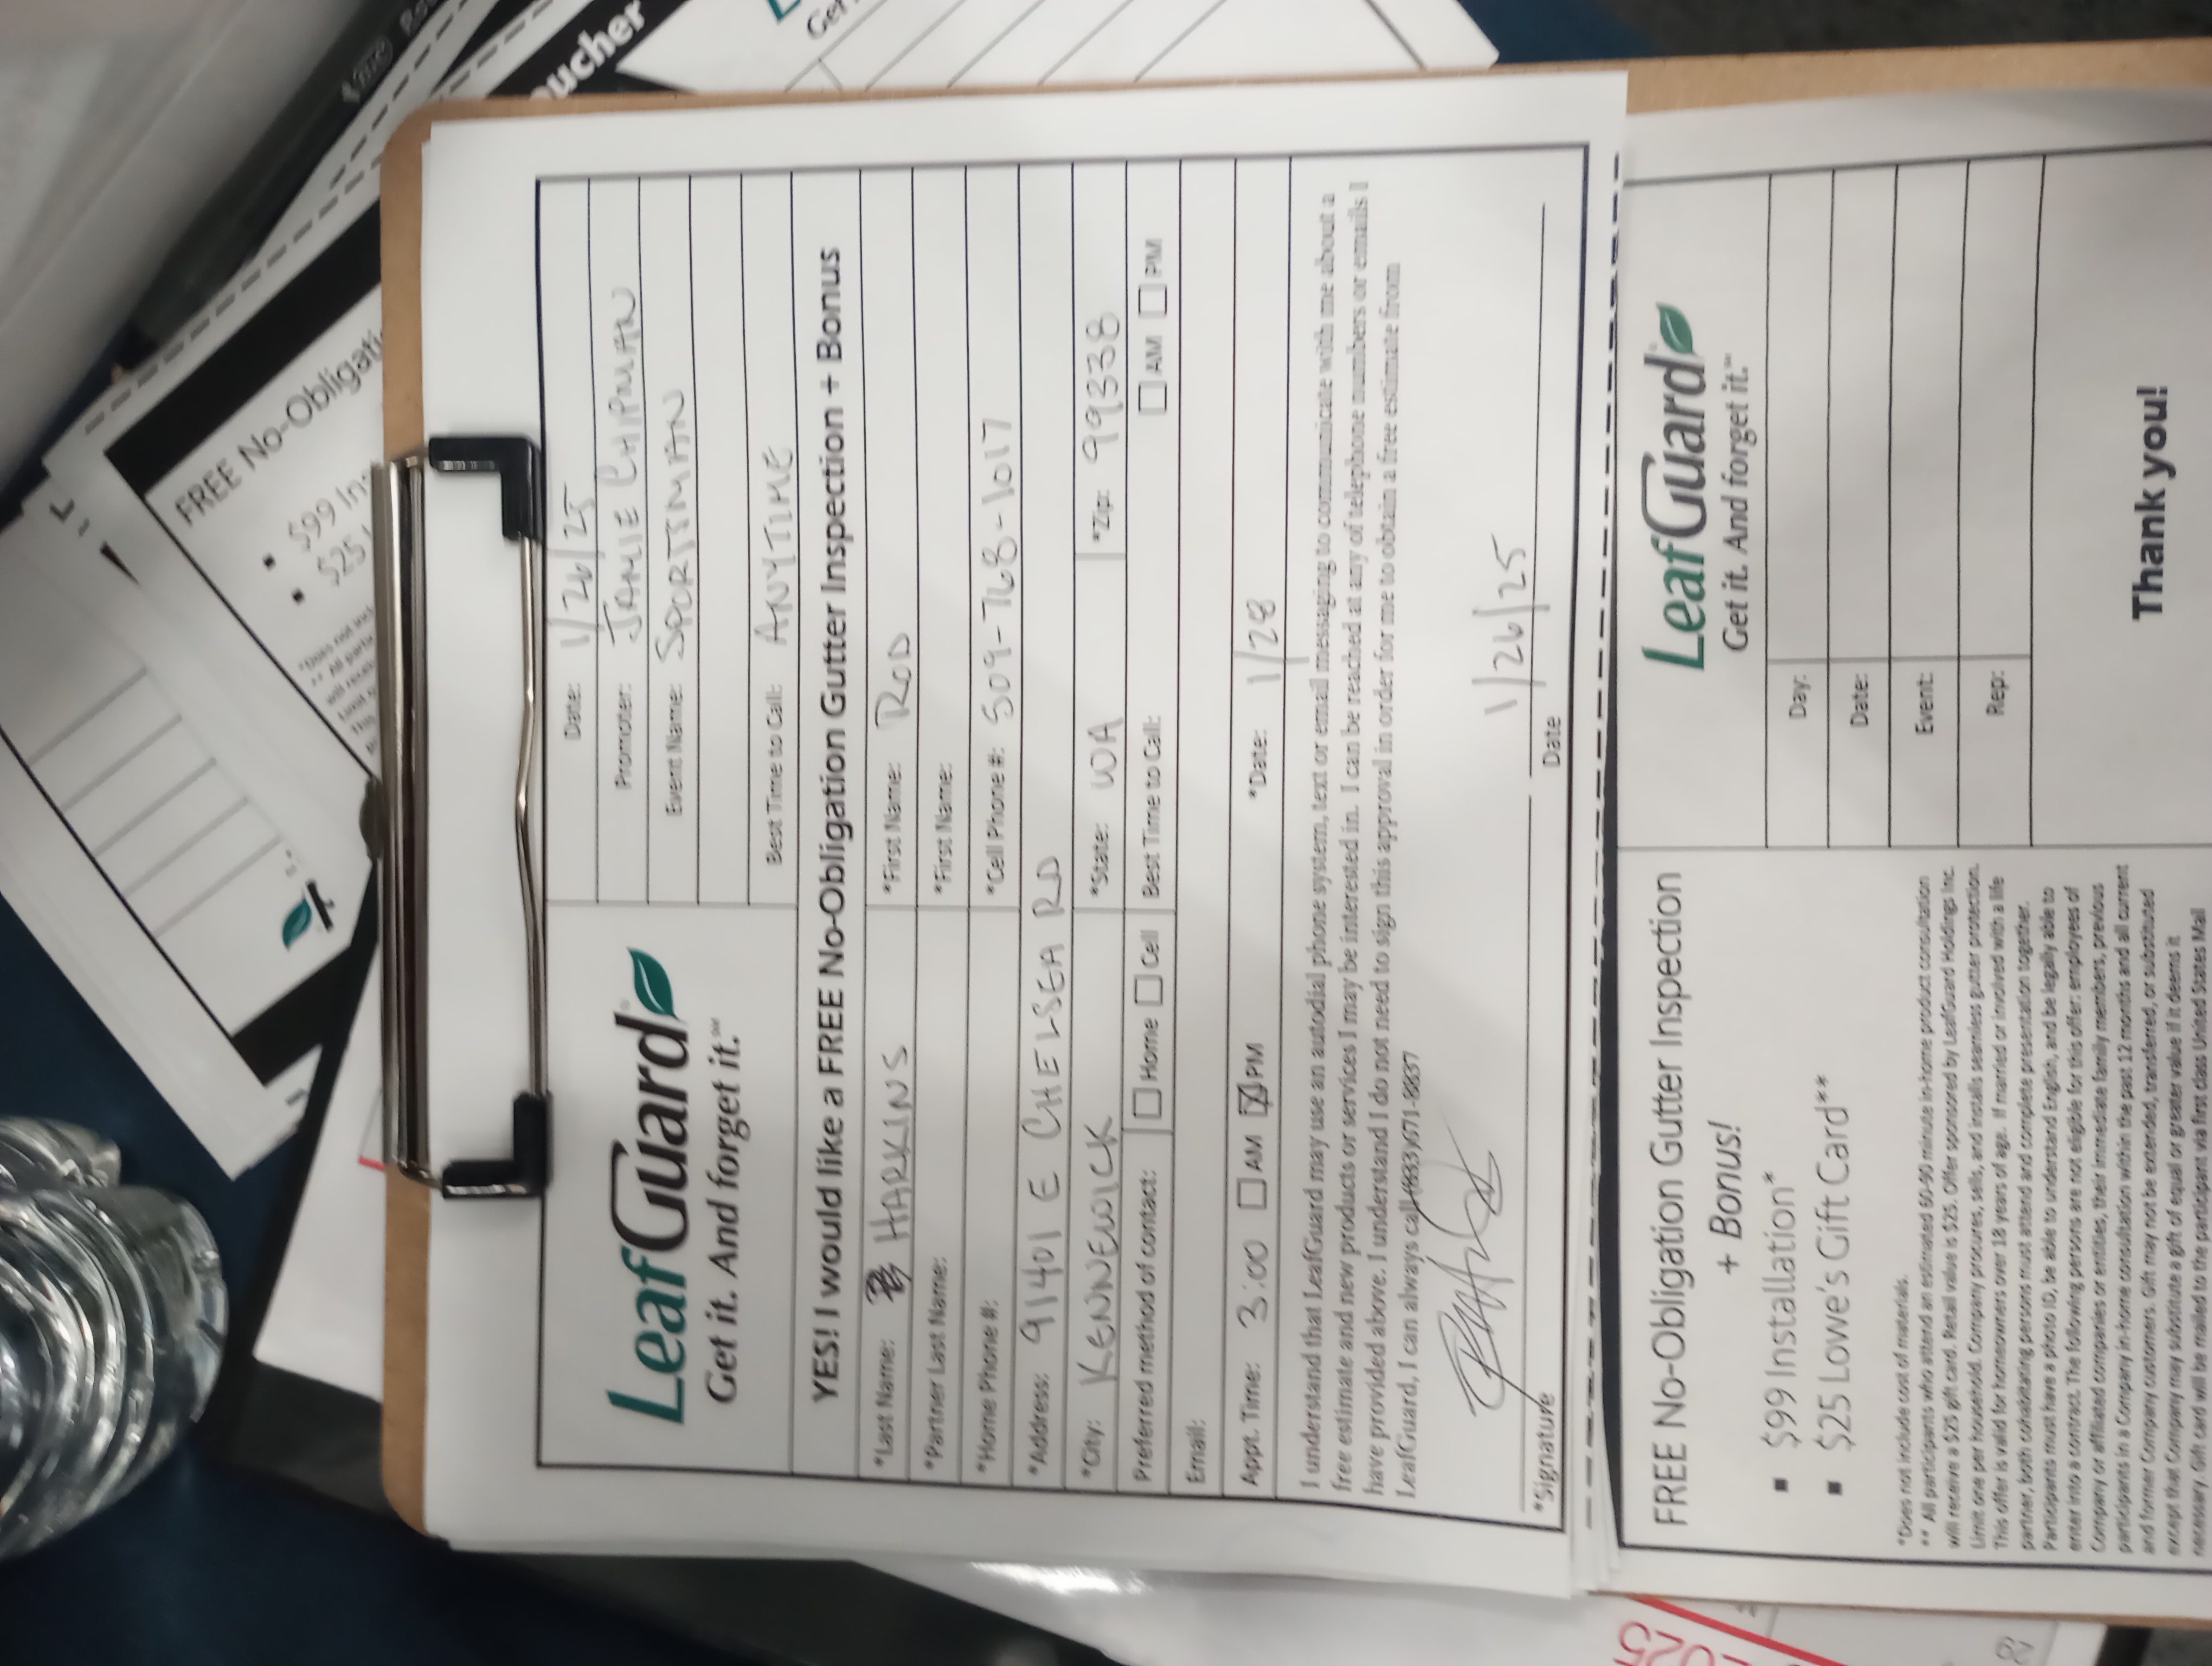 FREE No-Obligati
$99 Ins
$25
ucher
LeafGuard
Get it. And forget it.℠
Date: 1/26/25
Promoter: JAMIE CHIPMAN
Event Name: SPORTSMAN
Best Time to Call: ANYTIME
YES! I would like a FREE No-Obligation Gutter Inspection + Bonus
*Last Name: HARKINS *First Name: ROD
*Partner Last Name: *First Name:
*Home Phone #: *Cell Phone #: 509-768-1017
*Address: 91401 E CHELSEA RD
*City: KENNEWICK *State: WA *Zip: 99338
Preferred method of contact: Home Cell Best Time to Call: AM PM
Email:
Appt. Time: 3:00 AM PM *Date: 1/28
I understand that LeafGuard may use an autodial phone system, text or email messaging to communicate with me about a
free estimate and new products or services I may be interested in. I can be reached at any of telephone numbers or emails I
have provided above. I understand I do not need to sign this approval in order for me to obtain a free estimate from
LeafGuard, I can always call (833)671-8837
1/26/25
*Signature Date
FREE No-Obligation Gutter Inspection
+ Bonus!
▪ $99 Installation*
▪ $25 Lowe's Gift Card**
*Does not include cost of materials.
** All participants who attend an estimated 60-90 minute in-home product consultation
will receive a $25 gift card. Retail value is $25. Offer sponsored by LeafGuard Holdings Inc.
Limit one per household. Company procures, sells, and installs seamless gutter protection.
This offer is valid for homeowners over 18 years of age. If married or involved with a life
partner, both cohabitating persons must attend and complete presentation together.
Participants must have a photo ID, be able to understand English, and be legally able to
enter into a contract. The following persons are not eligible for this offer: employees of
Company or affiliated companies or entities, their immediate family members, previous
participants in a Company in-home consultation within the past 12 months and all current
and former Company customers. Gift may not be extended, transferred, or substituted
except that Company may substitute a gift of equal or greater value if it deems it
necessary. Gift card will be mailed to the participant via first class United States Mail
LeafGuard
Get it. And forget it.℠
Day:
Date:
Event:
Rep:
Thank you!
2025
29